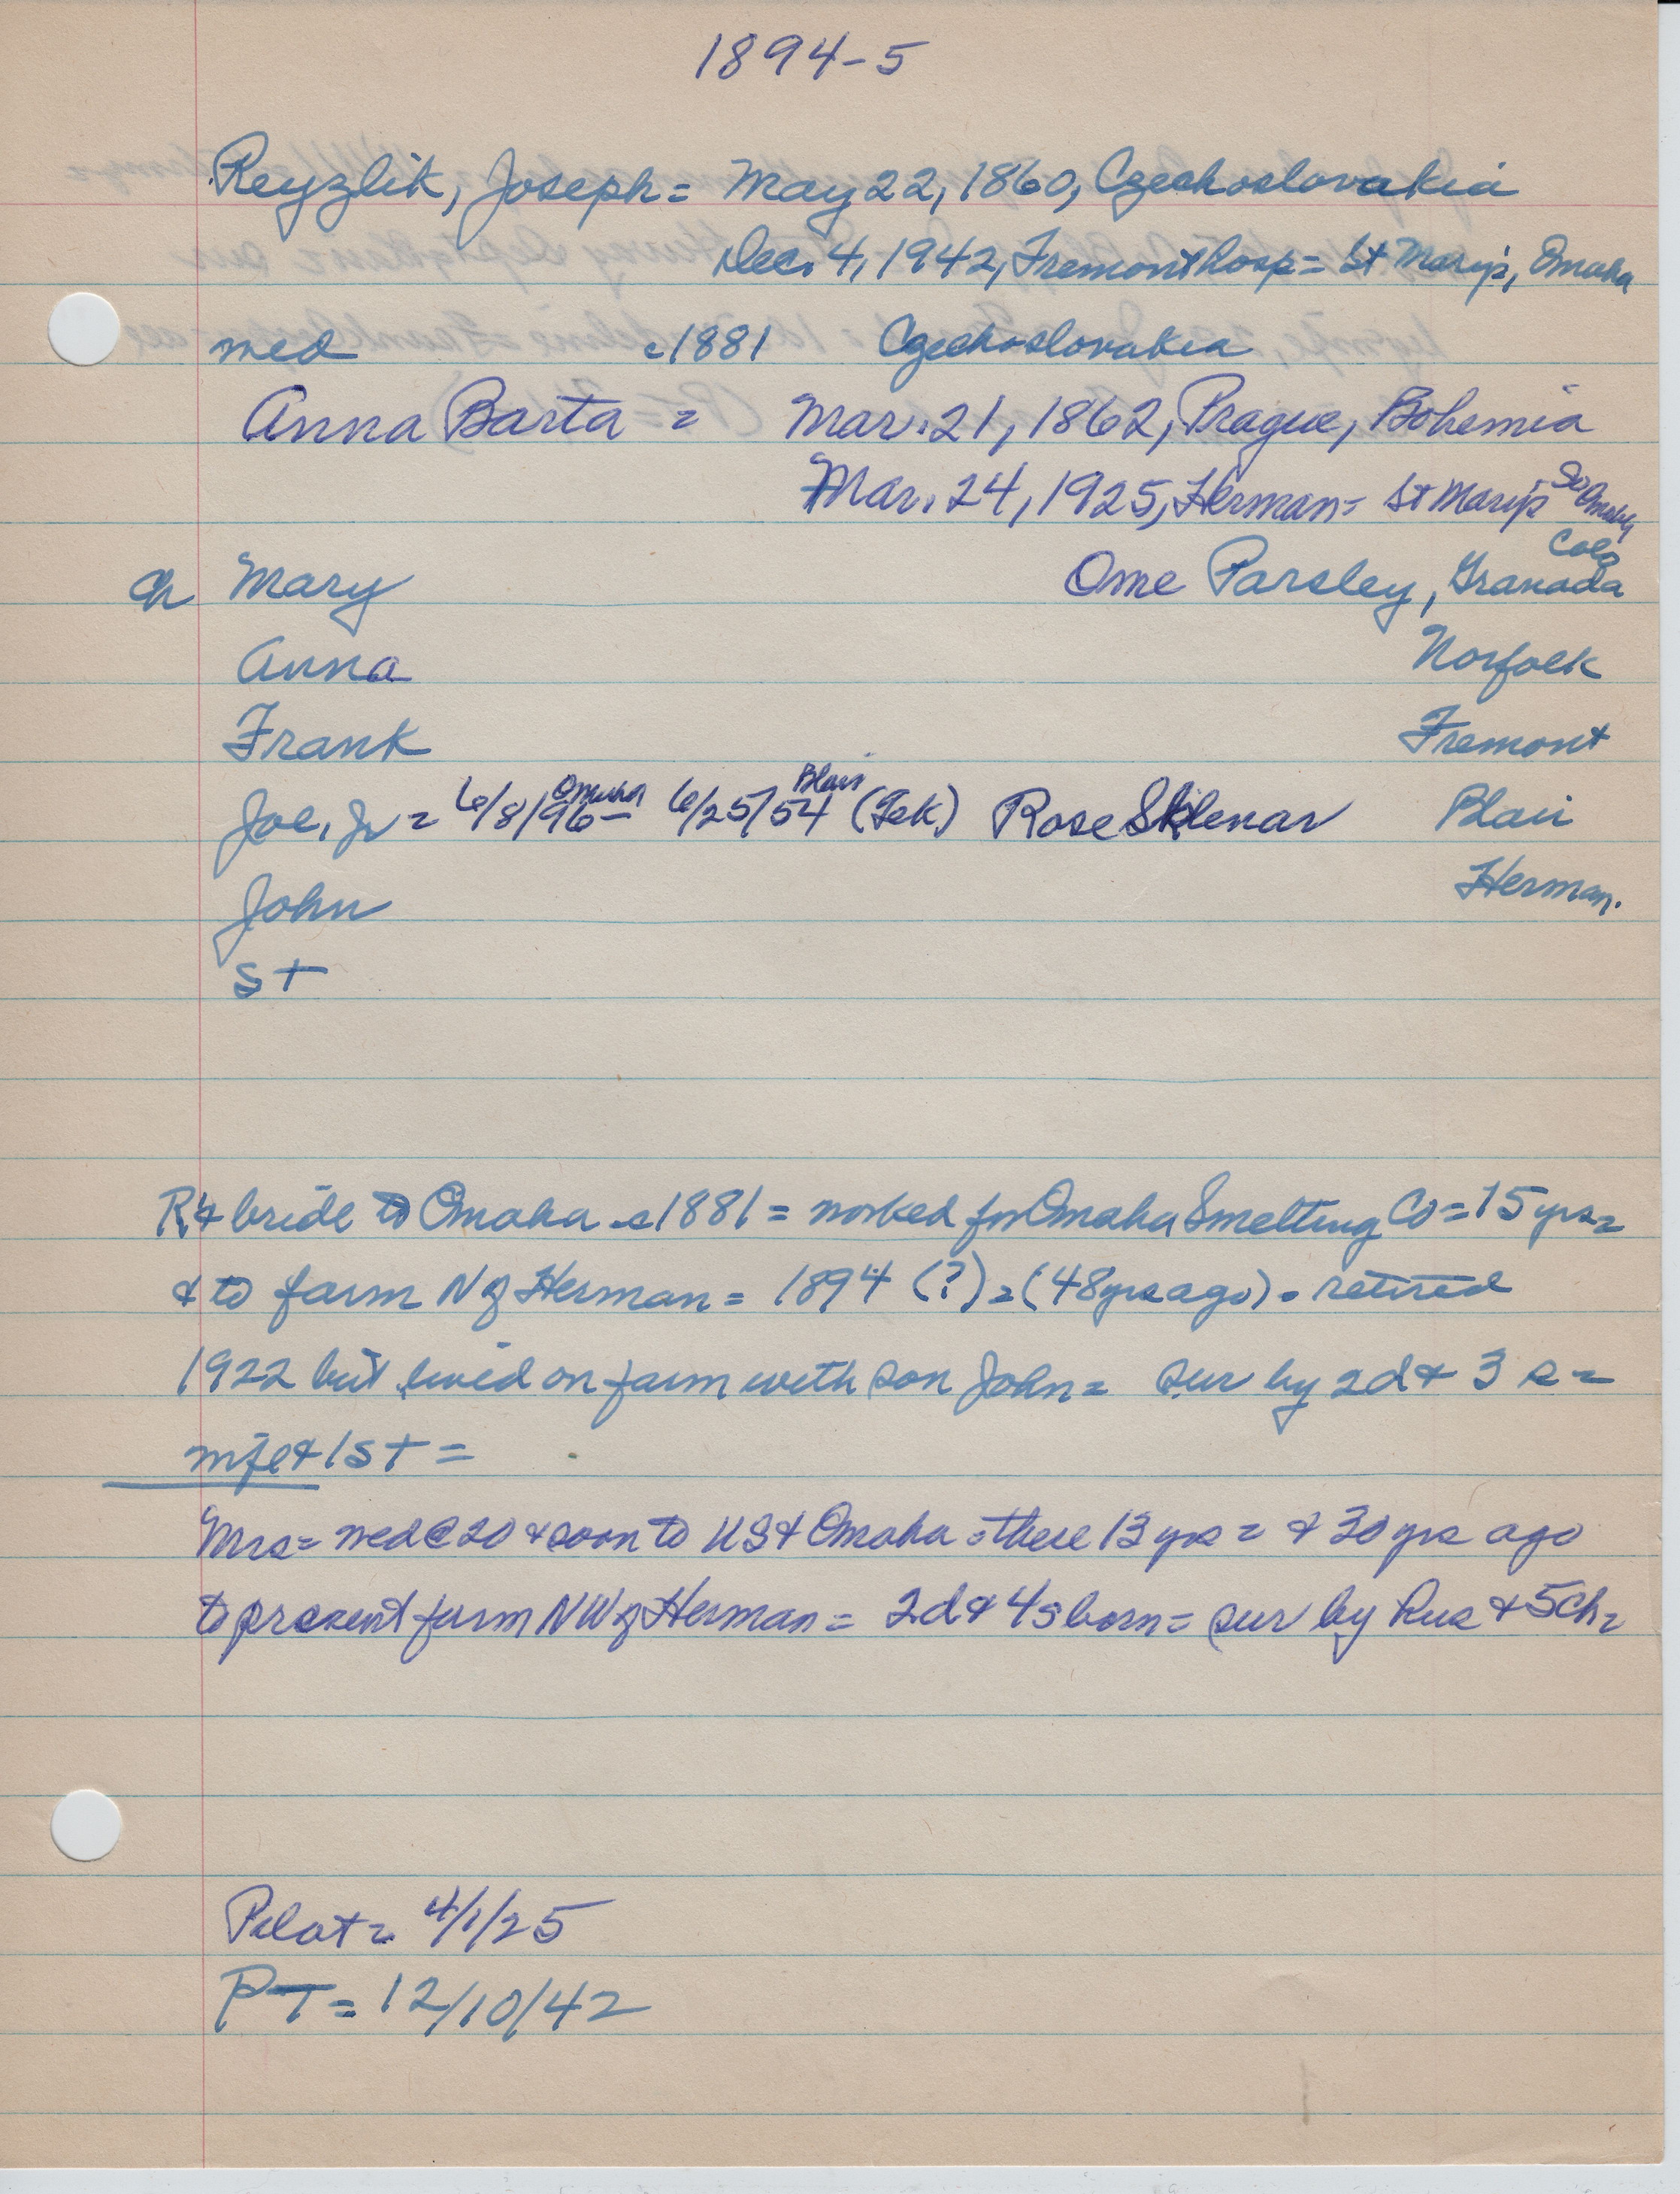 1894-5
Reyzlik, Joseph = May 22, 1860, Czechoslovakia
Dec. 4, 1942, Fremont hosp = St Mary's, Omaha
wed c1881 Czechoslovakia
Anna Barta = Mar. 21, 1862, Prague, Bohemia
Mar. 24, 1925, Herman = St Mary's So Omaha
ch Mary Ome Parsley, Granada Colo
Anna Norfolk
Frank Fremont
Joe, Jr = 6/8/96 Omaha - 6/25/54 Blair (Tek) Rose Sklenar Blair
John Herman.
ST
R & bride to Omaha c1881 = worked for Omaha Smelting Co = 15 yrs =
& to farm N of Herman = 1894 (?) = (48 yrs ago) = retired
1922 but lived on farm with son John = sur by 2d & 3 s =
wife & 1 ST =
Mrs = wed @ 20 & soon to US & Omaha = there 13 yrs = & 30 yrs ago
to present farm NW of Herman = 2d & 4s born = sur by hus & 5ch =
Pilot = 4/1/25
PT = 12/10/42